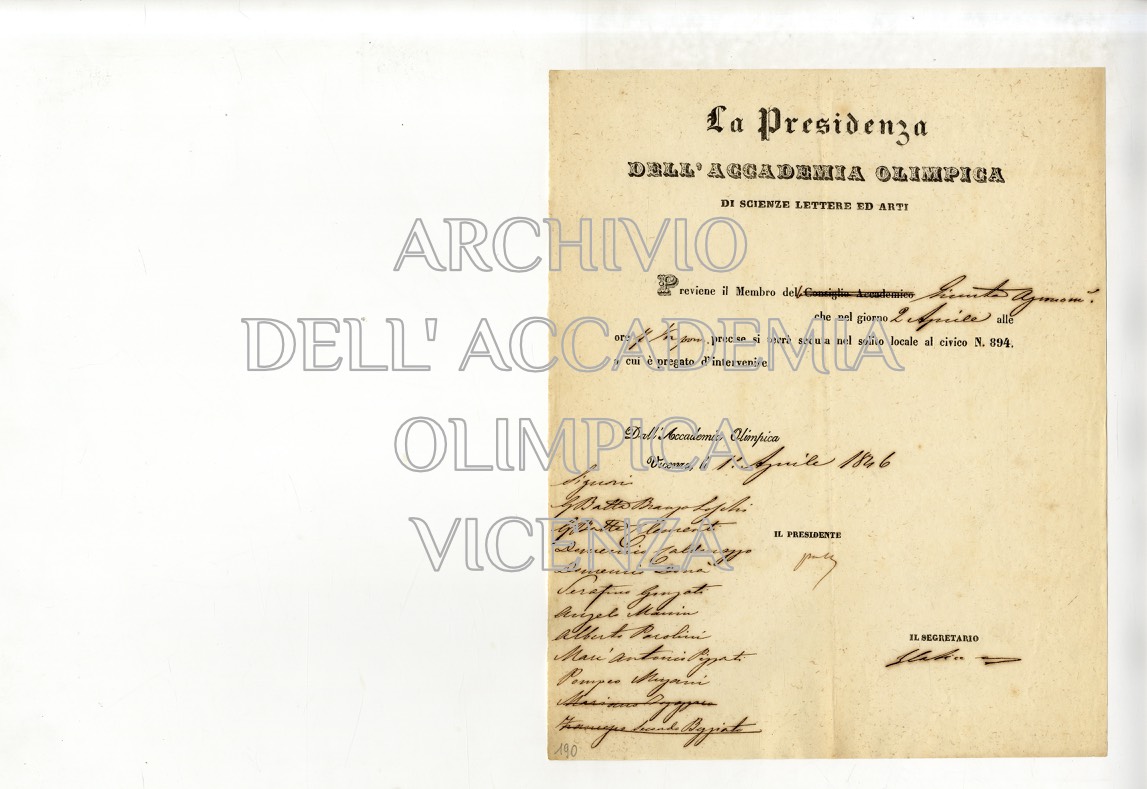 La Presidenza
DELL' ACCADEMIA OLIMPICA
DI SCIENZE LETTERE ED ARTI
ARCHIVIO
DELL' ACCADEMIA
OLIMPICA
VICENZA
Previene il Membro del Consiglio Accademico
che nel giorno 2 Aprile alle
ore 7 1/2 pom. precise si terrà seduta nel solito locale al civico N. 894.
a cui è pregato d'intervenire
Dall' Accademia Olimpica
Vicenza, li 1° Aprile 1846
Signori
GBatta
GBatta Clementi
Domenico Caldonazzo
Domenico
Serafino
Angelo
Alberto Parolini
Marc' Antonio
Pompeo
Mariano
Francesco Secondo Beggiato
IL PRESIDENTE
IL SEGRETARIO
190